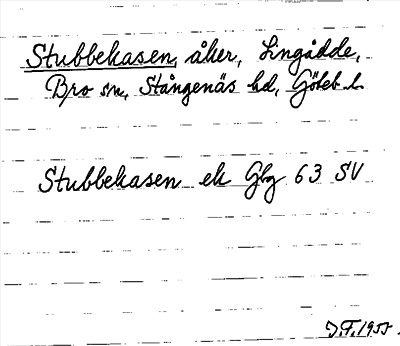 Stubbekasen, åker, Lingådde,
Bro sn, Stångenäs hd, Göteb l.
Stubbekasen ek Gbg 63 SV
J.F. 1955.